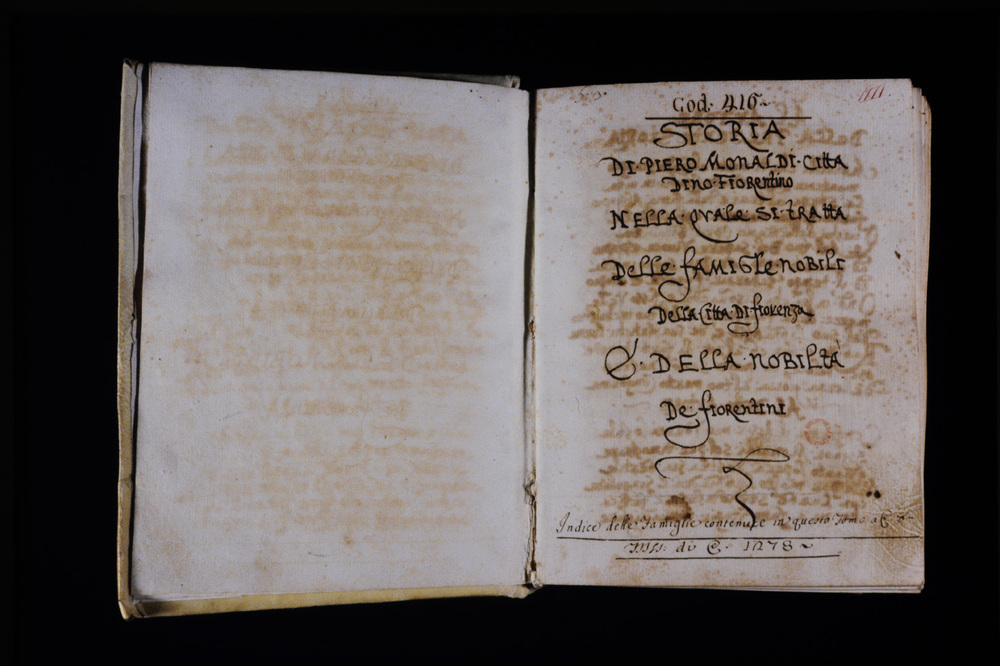 Cod. 416.
STORIA
DI·PIERO MONALDI·CITTA
DINO·FIORENTINO
NELLA·QVALE·SI·TRATTA
DELLE FAMIGLE NOBILI
DELLA·CITTA·DI·FIORENZA
E·DELLA·NOBILTA
DE·FIORENTINI
Indice delle Famiglie contenute in questo Tomo a C
di C. 1278